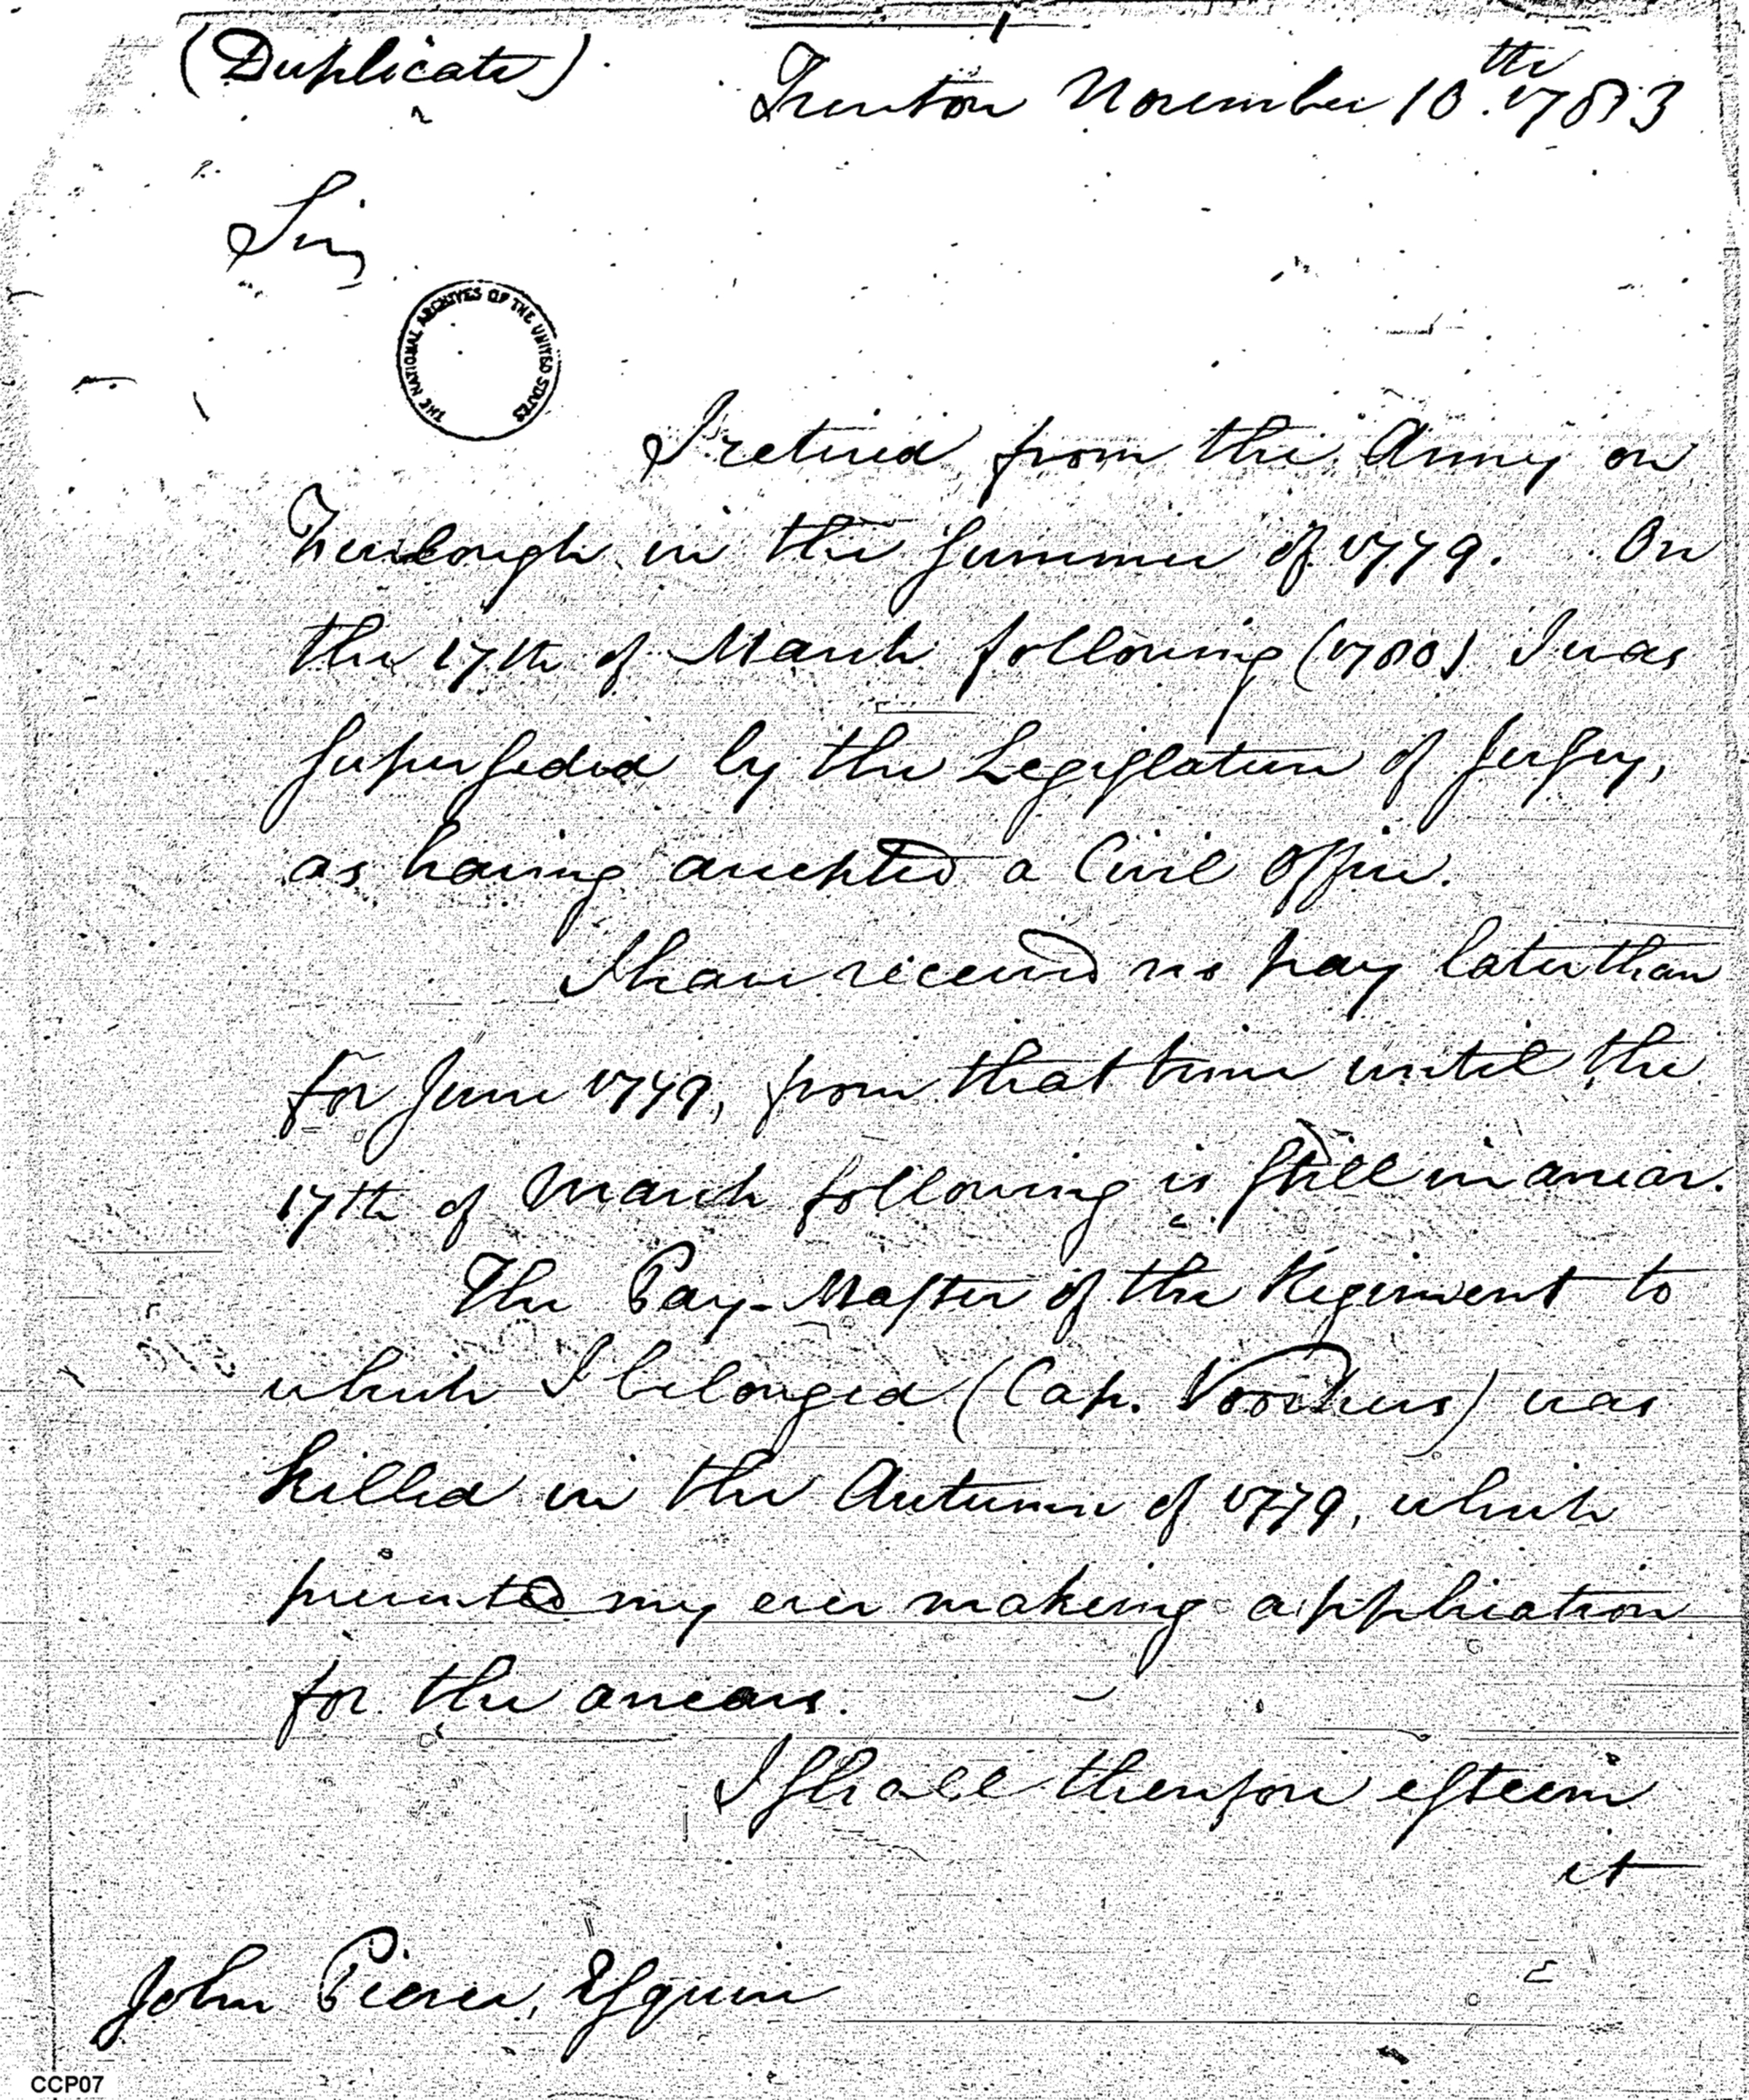 (Duplicate)
Trenton November 10th. 1783
Sir,
THE NATIONAL ARCHIVES OF THE UNITED STATES
I retired from the Army on
Furlough in the Summer of 1779. On
the 17th of March following (1780) I was
Superseded by the Legislature of Jersey,
as having accepted a Civil Office.
I have received no pay later than
for June 1779, from that time until the
17th of March following is Still in arrear.
The Pay-Master of the Regiment to
which I belonged (Cap. Voorhees) was
killed in the Autumn of 1779, which
prevented my ever making application
for the arrears.
I Shall therefore esteem
it
John Pierce, Esquire
CCP07